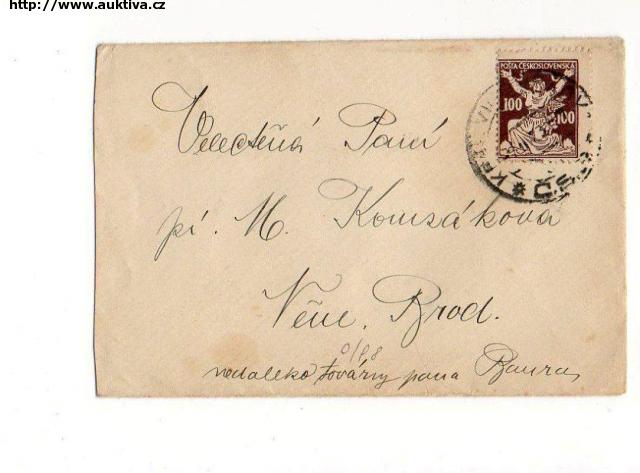 http://www.auktiva.cz
POŠTA ČESKOSLOVENSKÁ
100 100
Velectěná Paní
pí. M. Komzáková
Něm. Brod.
nedaleko továrny pana